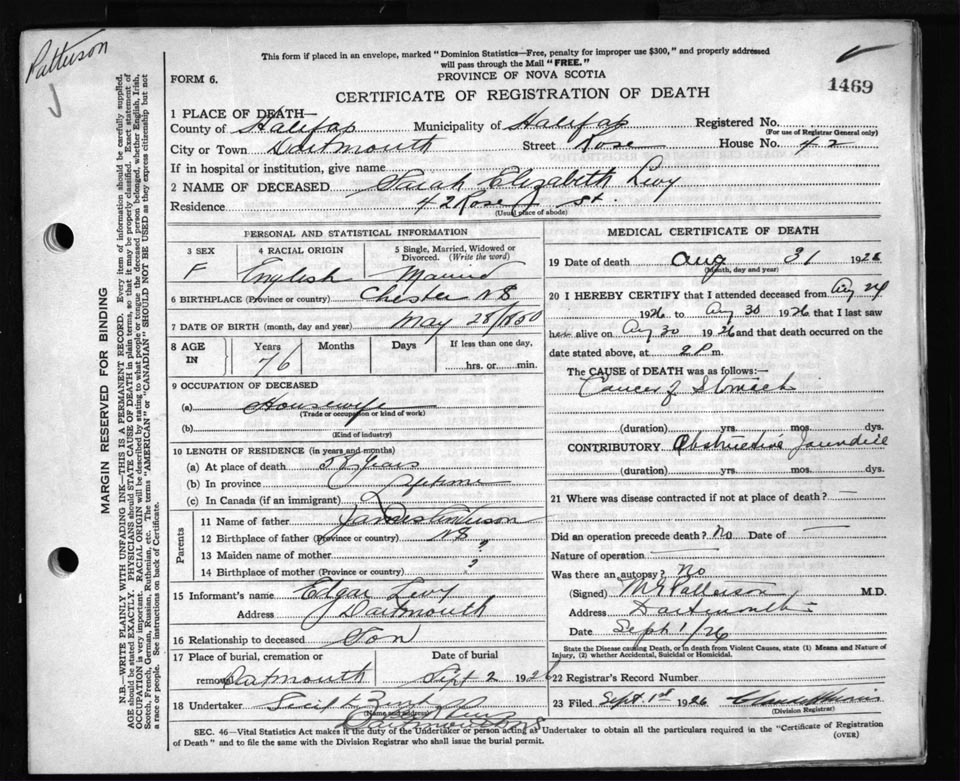 Patterson
This form if placed in an envelope, marked "Dominion Statistics—Free, penalty for improper use $300," and properly addressed
will pass through the Mail "FREE."
PROVINCE OF NOVA SCOTIA
FORM 6.
1469
CERTIFICATE OF REGISTRATION OF DEATH
1 PLACE OF DEATH—
County of Halifax Municipality of Halifax Registered No.
(For use of Registrar General only)
City or Town Dartmouth Street Rose House No. 42
If in hospital or institution, give name
2 NAME OF DECEASED Sarah Elizabeth Levy
Residence 42 Rose St.
(Usual place of abode)
PERSONAL AND STATISTICAL INFORMATION
3 SEX 4 RACIAL ORIGIN 5 Single, Married, Widowed or
Divorced. (Write the word)
F English Married
6 BIRTHPLACE (Province or country) Chester NS
7 DATE OF BIRTH (month, day and year) May 28/1850
8 AGE IN Years Months Days If less than one day,
76 hrs. or min.
9 OCCUPATION OF DECEASED
(a) Housewife
(Trade or occupation or kind of work)
(b)
(Kind of industry)
10 LENGTH OF RESIDENCE (in years and months)
(a) At place of death Years
(b) In province Lifetime
(c) In Canada (if an immigrant)
Parents
11 Name of father James
12 Birthplace of father (Province or country) NS
13 Maiden name of mother ?
14 Birthplace of mother (Province or country) ?
15 Informant's name Edgar Levy
Address Dartmouth
16 Relationship to deceased Son
17 Place of burial, cremation or Date of burial
removal Dartmouth Sept 2 1926
18 Undertaker
(Name and address)
MEDICAL CERTIFICATE OF DEATH
19 Date of death Aug 31 1926
(Month, day and year)
20 I HEREBY CERTIFY that I attended deceased from Aug 24
1926 to Aug 30 1926 that I last saw
her alive on Aug 30 1926 and that death occurred on
date stated above, at 2 P m.
The CAUSE of DEATH was as follows:—
Cancer of Stomach
(duration) yrs. mos. dys.
CONTRIBUTORY Obstructive Jaundice
(duration) yrs. mos. dys.
21 Where was disease contracted if not at place of death? —
Did an operation precede death? No Date of —
Nature of operation —
Was there an autopsy? No
(Signed) Patterson M.D.
Address Dartmouth
Date Sept 1/26
State the Disease causing Death, or in death from Violent Causes, state (1) Means and Nature of
Injury, (2) whether Accidental, Suicidal or Homicidal.
22 Registrar's Record Number
23 Filed Sept 1st 1926
(Division Registrar)
SEC. 46—Vital Statistics Act makes it the duty of the Undertaker or person acting as Undertaker to obtain all the particulars required in the "Certificate of Registration
of Death" and to file the same with the Division Registrar who shall issue the burial permit. (OVER)
MARGIN RESERVED FOR BINDING
N.B.—WRITE PLAINLY WITH UNFADING INK—THIS IS A PERMANENT RECORD. Every item of information should be carefully supplied.
AGE should be stated EXACTLY. PHYSICIANS should STATE CAUSE OF DEATH in plain terms, so that it may be properly classified. Exact statement of
OCCUPATION is very important. RACIAL ORIGIN will be described by stating to what people or tongue the deceased person belonged, whether English, Irish,
Scotch, French, German, Russian, Ruthenian, etc. The terms "AMERICAN" or "CANADIAN" SHOULD NOT BE USED as they express citizenship but not
a race or people. See instructions on back of Certificate.